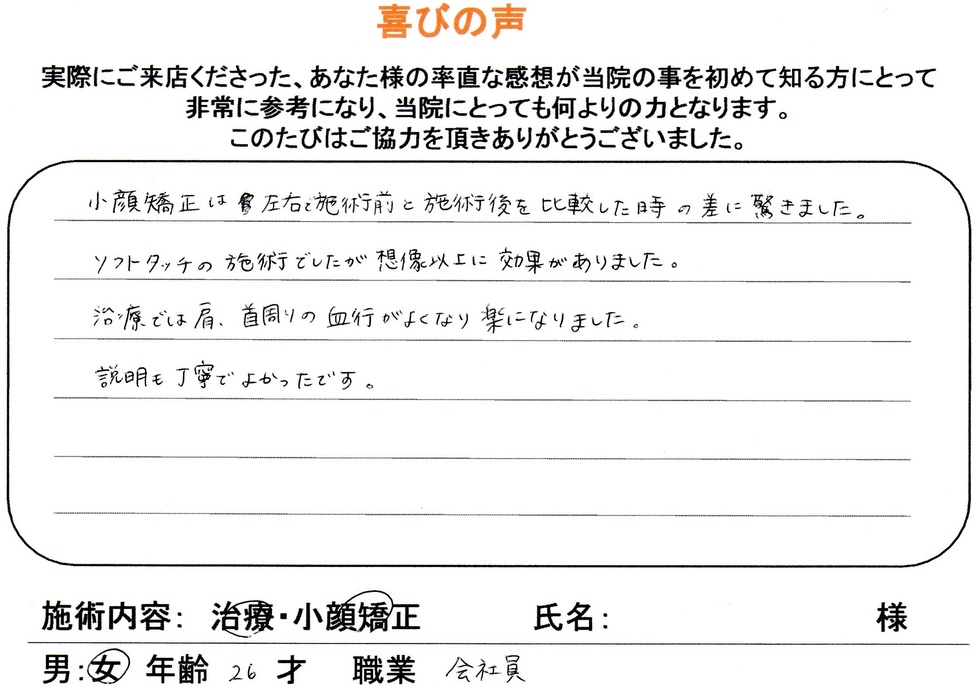 喜びの声
実際にご来店くださった、あなた様の率直な感想が当院の事を初めて知る方にとって
非常に参考になり、当院にとっても何よりの力となります。
このたびはご協力を頂きありがとうございました。
小顔矯正は 左右で施術前と施術後を比較した時の差に驚きました。
ソフトタッチの施術でしたが想像以上に効果がありました。
治療では肩、首周りの血行がよくなり楽になりました。
説明も丁寧でよかったです。
施術内容： 治療・小顔矯正 氏名： 様
男：女 年齢 26 才 職業 会社員